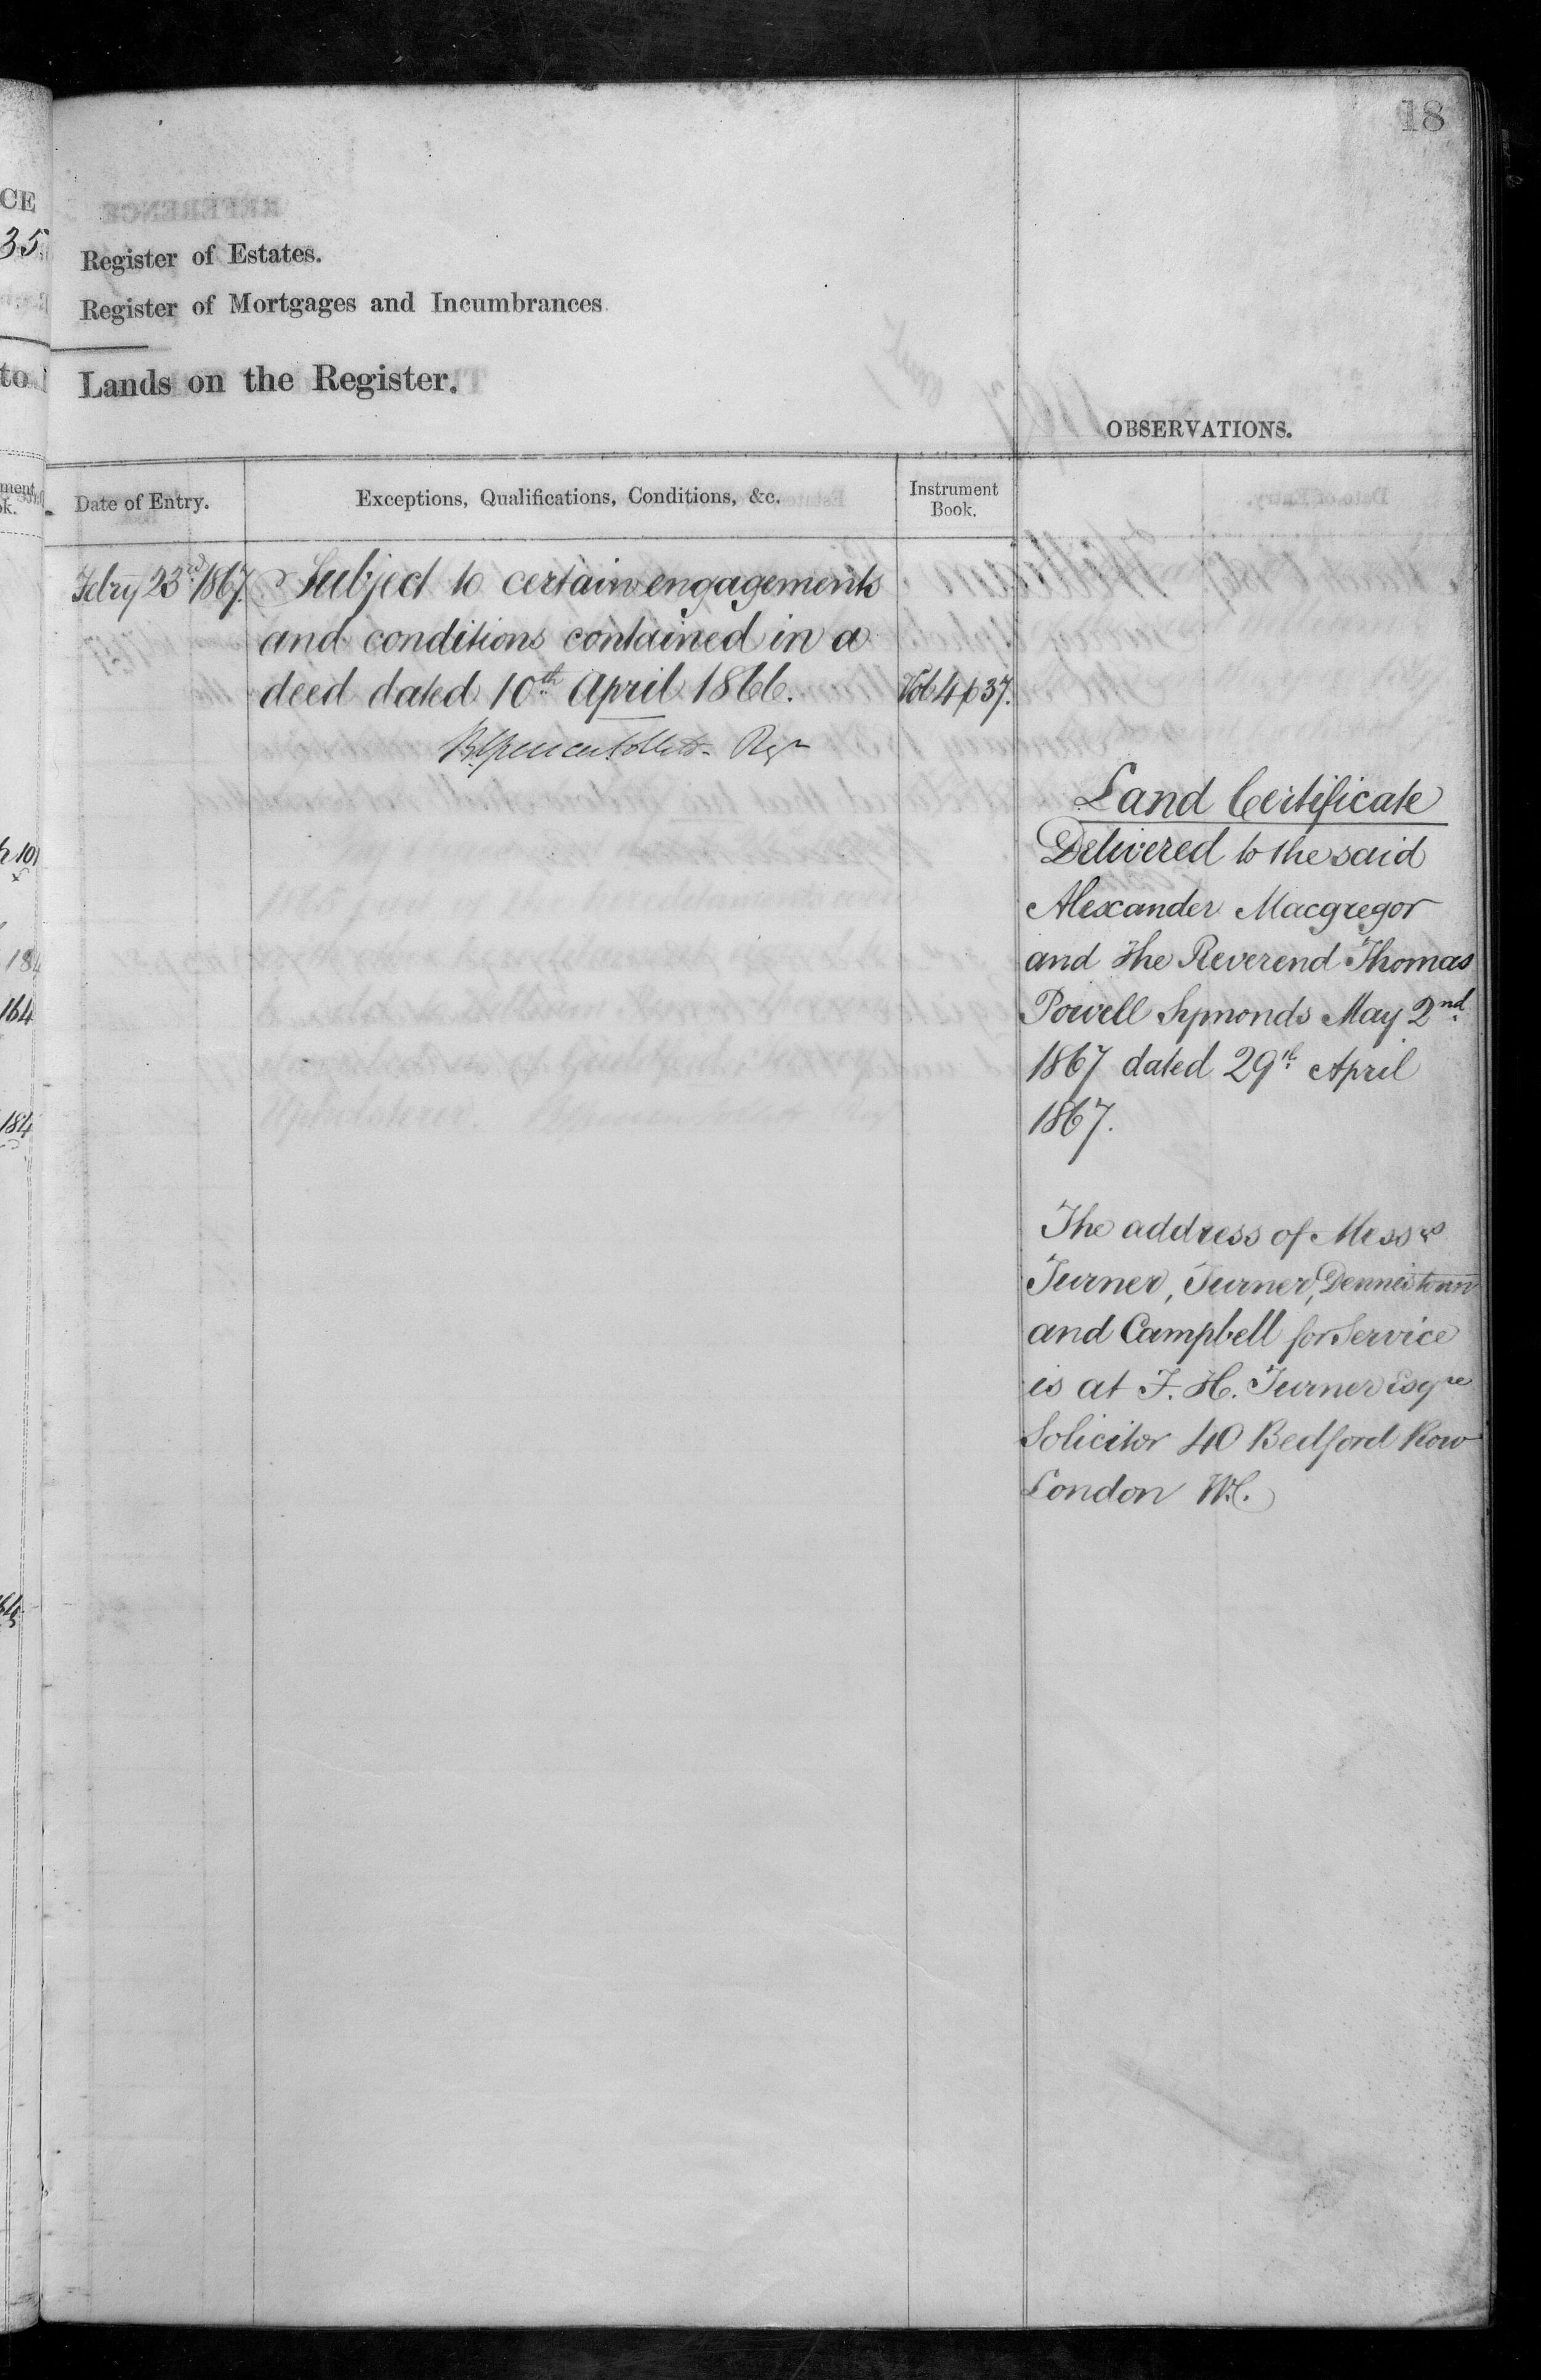 18
CE
35
Register of Estates.
Register of Mortgages and Incumbrances.
to
Lands on the Register.
OBSERVATIONS.
Date of Entry.
Exceptions, Qualifications, Conditions, &c.
Instrument
Book.
Febry 23rd 1867.
Subject to certain engagements
and conditions contained in a
deed dated 10th April 1866.
Vol 4 p 37.
Regr
Land Certificate
Delivered to the said
Alexander Macgregor
and The Reverend Thomas
Powell Symonds May 2nd
1867 dated 29th April
1867.
The address of Messrs
Turner, Turner, Dennistoun
and Campbell for Service
is at F. H. Turner Esqre
Solicitor 40 Bedford Row
London W.C.
184
164
184